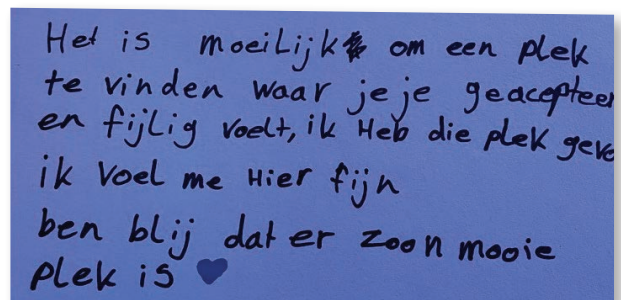 Het is moeilijk om een plek
te vinden waar je je geacepteer
en fijlig voelt, ik Heb die plek gevo
ik voel me Hier fijn
ben blij dat er zoon mooie
plek is ♥